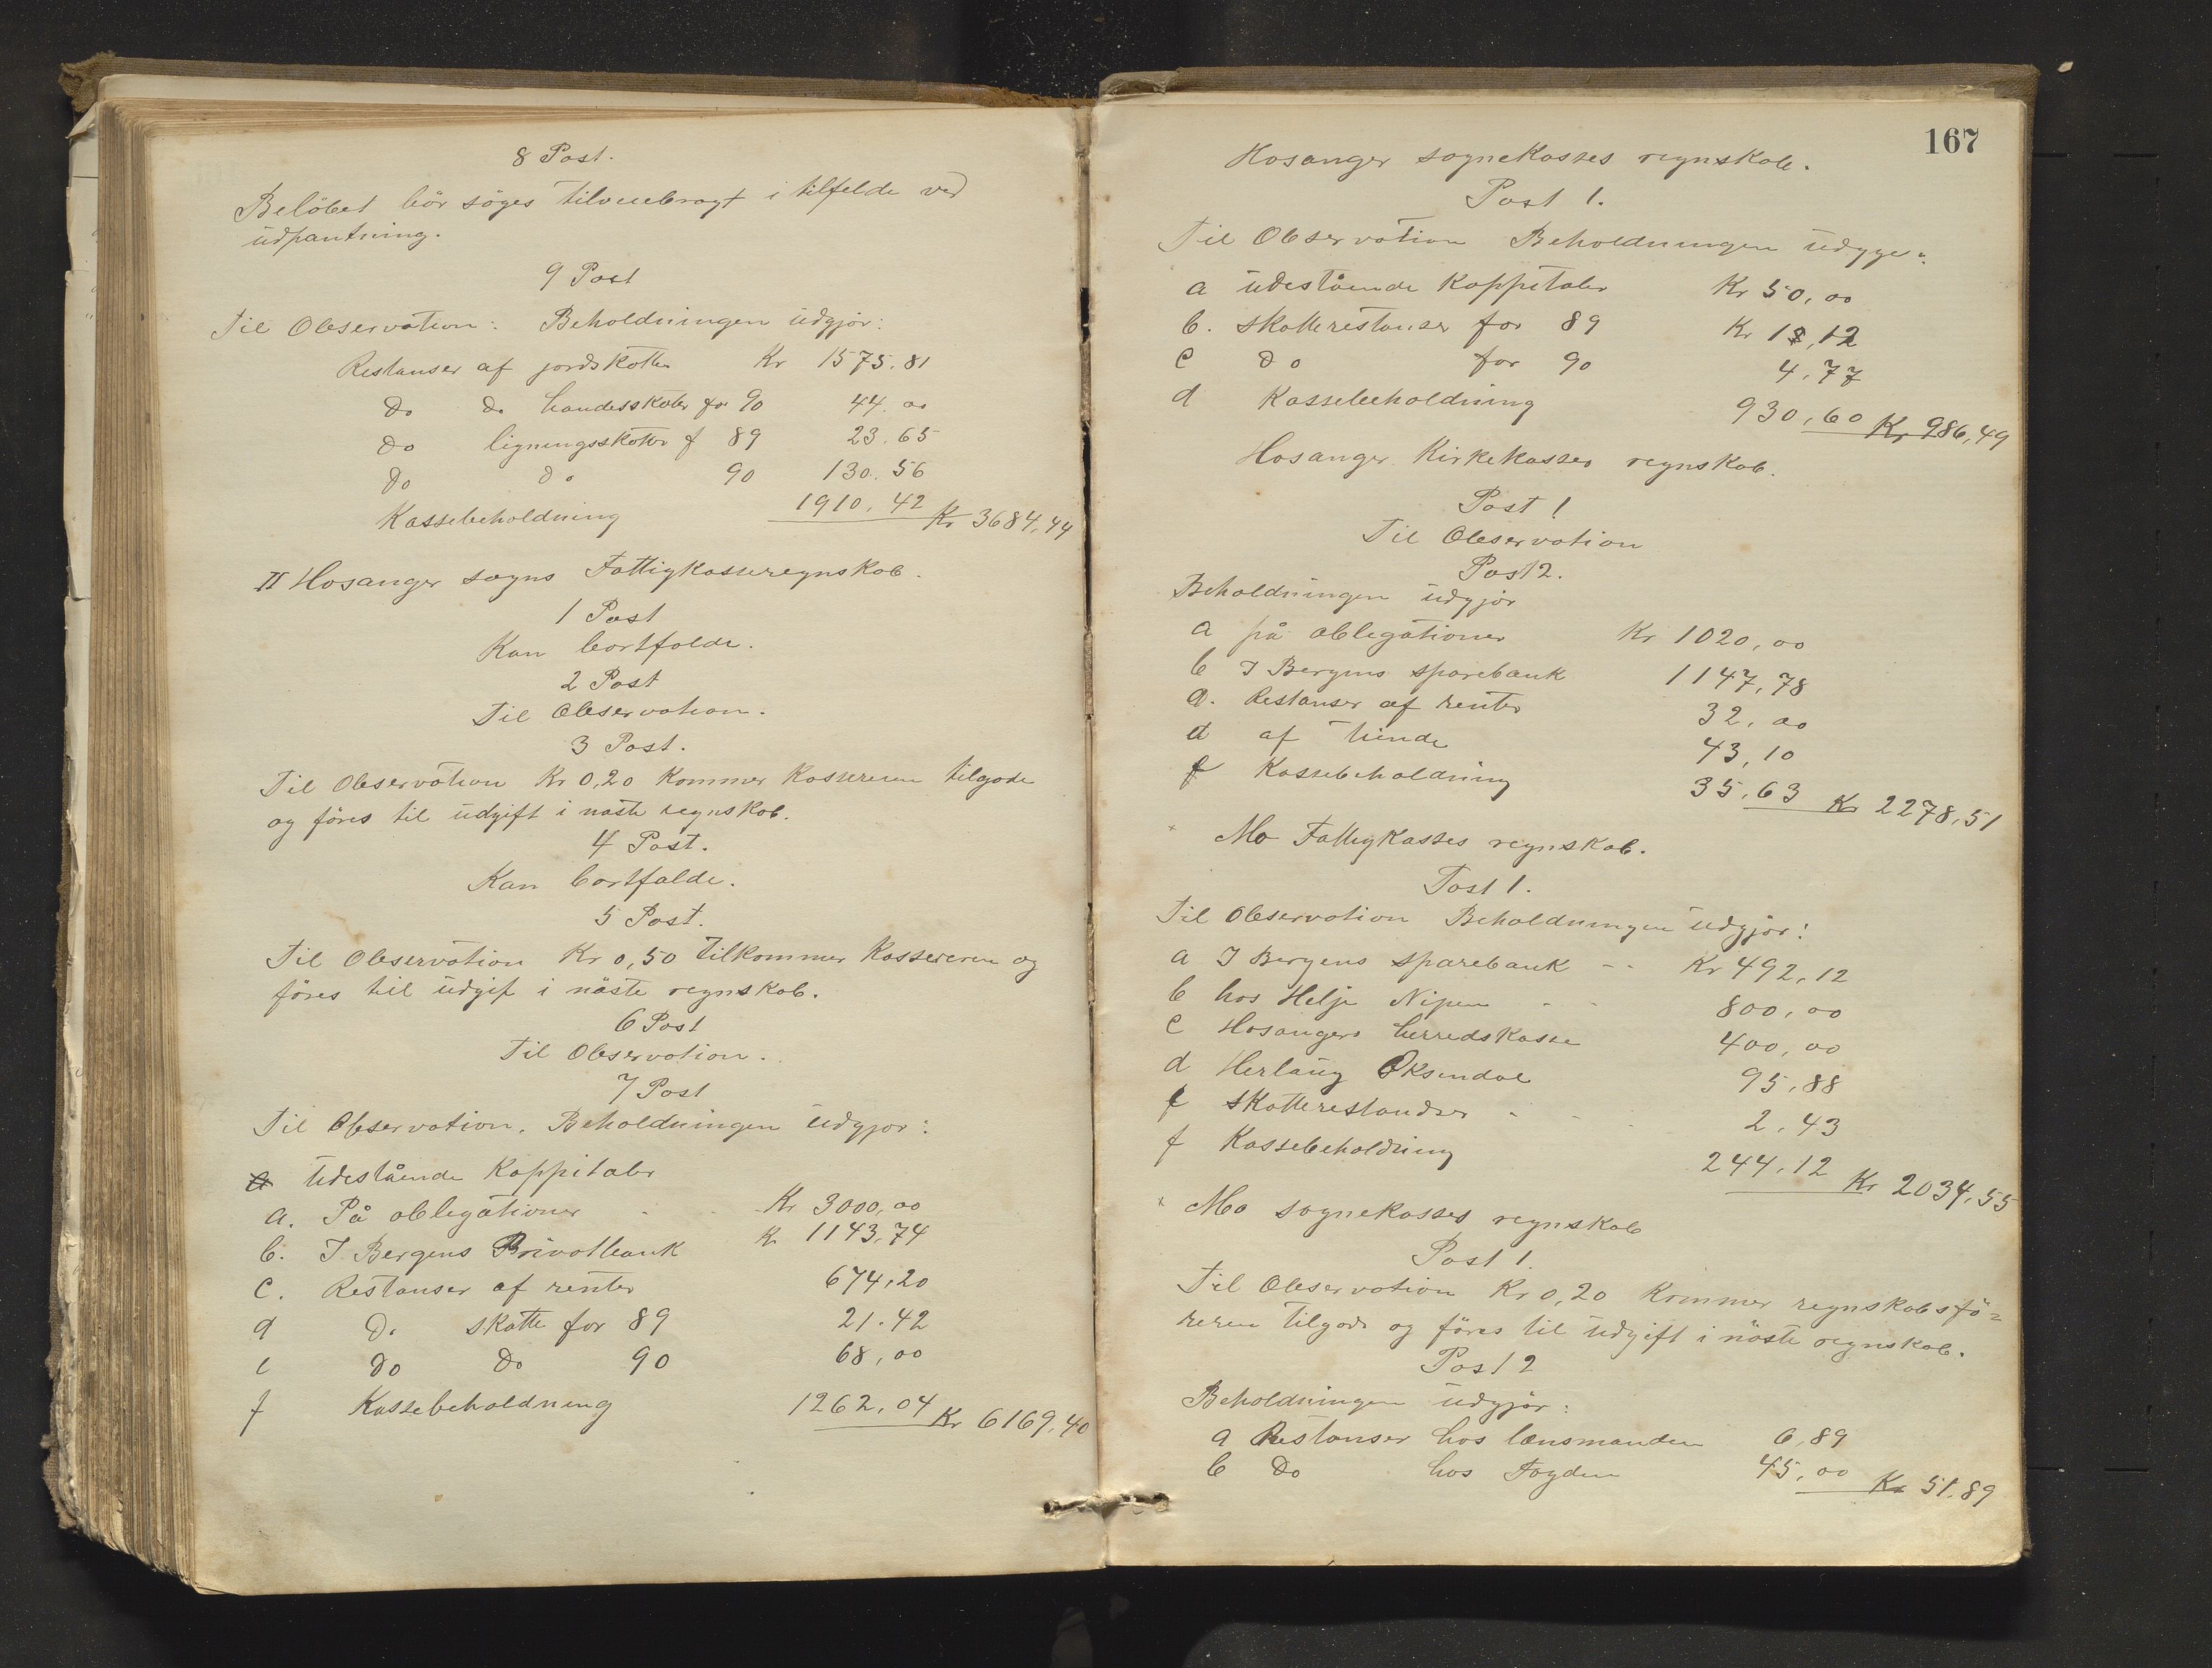 8 Post.
Beløbet bør søges tilveiebragt i tilfelde ved
udpantning.
9 Post
Til Observation: Beholdningen udgjør:
Restanser af jordskatter Kr 1575.81
Do Do handesskater for 90 44.00
Do ligningsskatter f 89 23.65
Do Do 90 130.56
Kassebeholdning 1910,42 Kr 3684,44
II Hosanger sogns Fattigkasseregnskab.
1 Post
Kan bortfalde.
2 Post
Til Observation.
3 Post.
Til Observation Kr 0,20 kommer Kassereren tilgode
og føres til udgift i nøste regnskab.
4 Post.
Kan bortfalde.
5 Post.
Til Observation Kr 0,50 tilkommer Kassereren og
føres til udgift i nøste regnskab.
6 Post
Til Observation.
7 Post
Til Observation. Beholdningen udgjør:
a Udestående Kappitaler
a. På obligationer - Kr 3000,00
b. I Bergens Privatbank K 1143,74
c. Restanser af renter 674,20
d Do skatte for 89 21.42
e do do 90 68,00
f Kassebeholdning 1262,04 Kr 6169,40
167
Hosanger sognekasses regnskab.
Post 1.
Til Observation Beholdningen udgjør:
a udestående Kappitaler Kr 50,00
b. skatterestanser for 89 Kr 1,12
c do for 90 4,77
d Kassebeholdning 930,60 Kr 986,49
Hosanger Kirkekasses regnskab.
Post 1
Til Observation
Post 2.
Beholdningen udgjør
a på obligationer Kr 1020,00
b I Bergens sparebank 1147,78
c. Restanser af renter 32,00
d af tiende 43,10
f Kassebeholdning 35,63 Kr 2278,51
Mo Fattigkasses regnskab.
Post 1.
Til Observation Beholdningen udgjør:
a I Bergens sparebank -- Kr 492,12
b hos Helje Nipen - - 800,00
c Hosangers herredskasse 400,00
d Herlaug Øksendal 95,88
e Skatterestandser - - 2,43
f Kassebeholdning 244,12 Kr 2034,55
Mo sognekasses regnskab
Post 1.
Til Observation Kr 0,20 kommer regnskabsfø=
reren tilgode og føres til udgift i nøste regnskab.
Post 2
Beholdningen udgjør:
a Restanser hos lensmanden 6,89
b Do hos Fogden 45,00 Kr 51,89